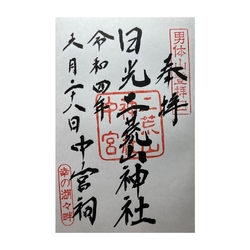 男体山登拝
奉拝
日光二荒山神社
二荒山
中宮
令和四年
六月二十八日中宮祠
幸の湖々畔